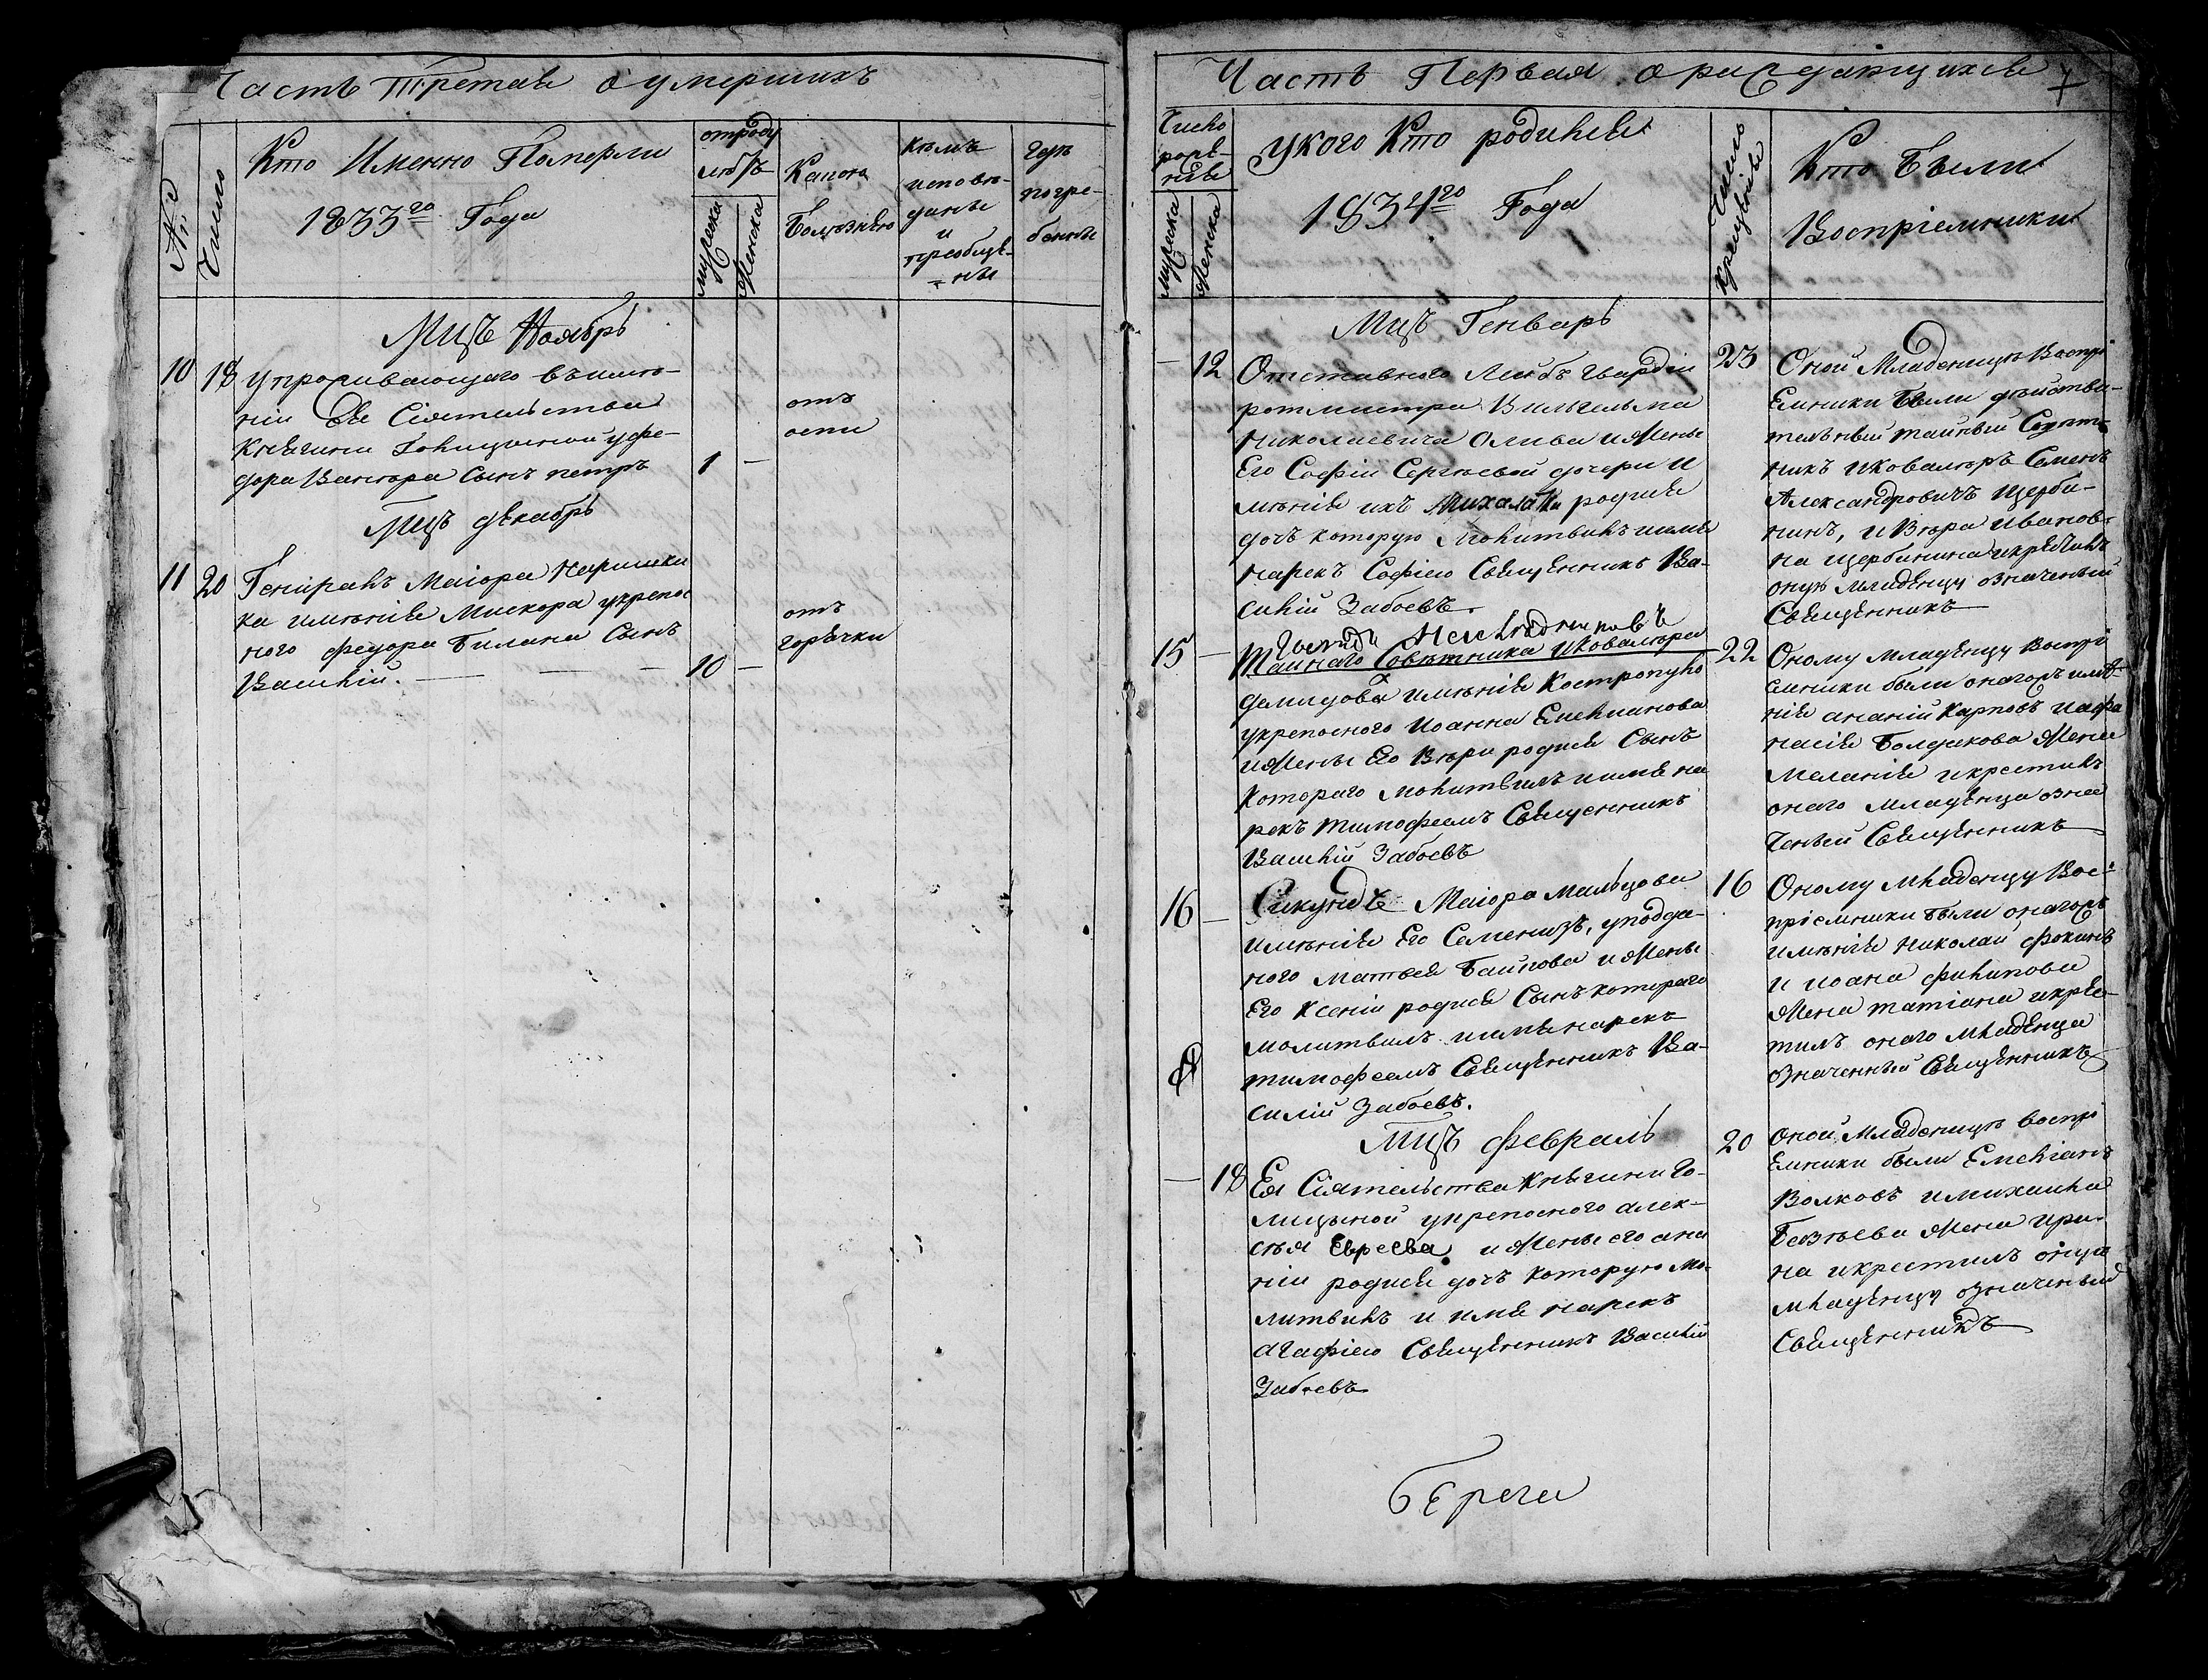 Часть Третая о умершихъ
№
Число
Кто Именно Померли
1833го Года
отроду
лѣтъ
мужеска
женска
Какою
Болѣзнью
Кѣмъ
исповѣ-
даны
и
приобще-
ны
Гдѣ
погре-
бенны
Мцъ Ноябрь
10 18 упроживающаго въимѣ-
ніи Ее Сіятельства
Княгини Голицыной уфе-
дора Вангора Сынъ петръ 1 —
отъ
оспи
Мцъ декабрь
11 20 Генералъ Маіора Наришки
ка имѣнія Мисхора укрепос
ного федора Билана Сынъ
Василій. — — — 10 —
отъ
горячки
Часть Первая о раждающихся
7
Число
рожде-
нія
мужеска
женска
Укого Кто родился
1834го Года
Число
крещенія
Кто Были
Воспріемники
Мцъ Генварь
— 12 Отставного Лейбъ гвардіи
ротмистра Вильгельма
Николаевича Олива и жены
Его Софіи Сергѣевой дочери и
мѣнія ихъ Михалатки родися
дочь которую молитвилъ иимя
нарекъ Софіею Священникъ Ва-
силій Забоевъ.
23 Оной Младеницѣ Воспрі
Емники были дѣйстви-
тельный тайный Совѣт-
никъ и ковалеръ Семенъ
Александровичъ Щерби-
нинъ, и Вѣра Иванов-
на щербинина икрѣстилъ
оную младенцу означеный
Священникъ
Господъ Нaслѣдниковъ
15 — Тайнаго Совѣтника Иковалера
демидова имѣнія Кастропуло
укрепосного Иоанна Емельянова
ижены Его Вѣри родися Сынъ
котораго молитвилъ иимя на
рекъ тимофеемъ Священникъ
Василій Забоевъ
22 Оному младенцу воспрі
емники были онагожъ имѣ-
нія ананій Карповъ иафа
насія Болдикова жена
меланія и крестилъ
онаго младенца озна
ченый Священникъ
16 — Сикундъ Маіора мальцова
имѣнія Его Семенизъ, уподда-
ного матвея Баинова ижены
Его Ксеніи родися Сынъ котораго
молитвилъ иимя нарекъ
тимофеемъ Священникъ Ва-
силій Забоевъ.
16 Оному младенцу Вос-
пріемники были онагожъ
имѣнія Николай фокинъ
и иоана филипова
жена татіана икрѣс-
тилъ онаго младенца
означенный Священникъ
Мцъ февраль
— 18 Ея Сіятельства Княгини Го-
лицыной укрепосного алек-
сѣя Евреева и жены его ана
ніи родися дочъ которую мо-
литвилъ и имя нарекъ
агафіею Священникъ Василій
Забоевъ
20 оной Младеницѣ воспрі
Емники были Емеліанъ
Волковъ имихаила
жена ири-
на икрестилъ оную
младенцу означеный
Священникъ
береги